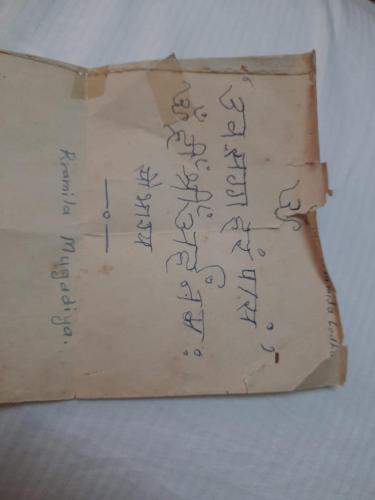 ॐ
'उवसग्ग हरं पासं'
ॐ ह्रीं श्रीं अर्हं नमः
सोभाग्य
—०—
Pramila Mugadiya.